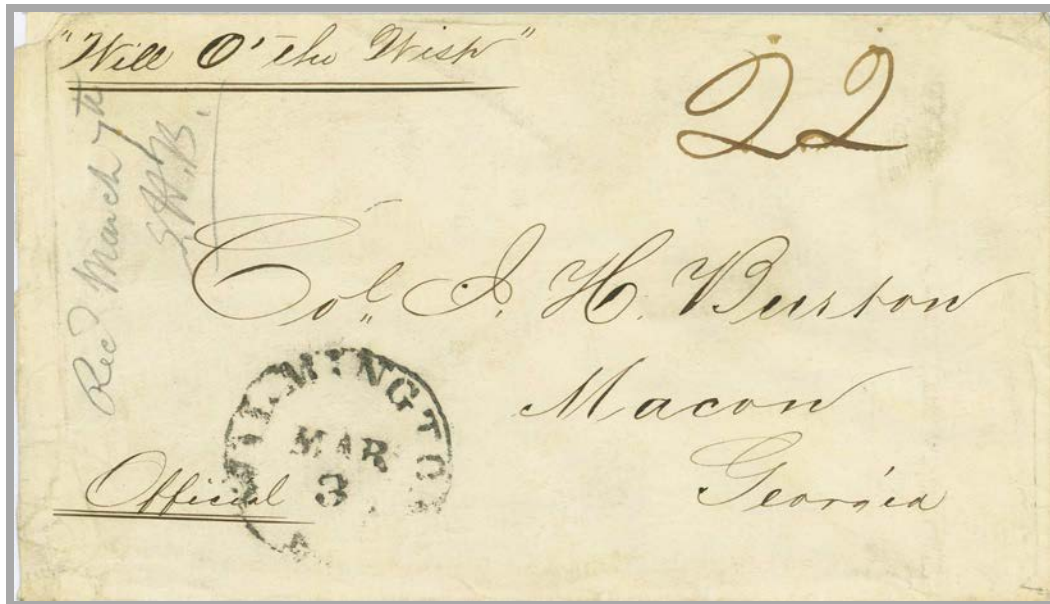 "Will O' the Wisp"
22
Rec'd March 7th
Col. J. H. Burton
Macon
Georgia
WILMINGTO
MAR
3
Official